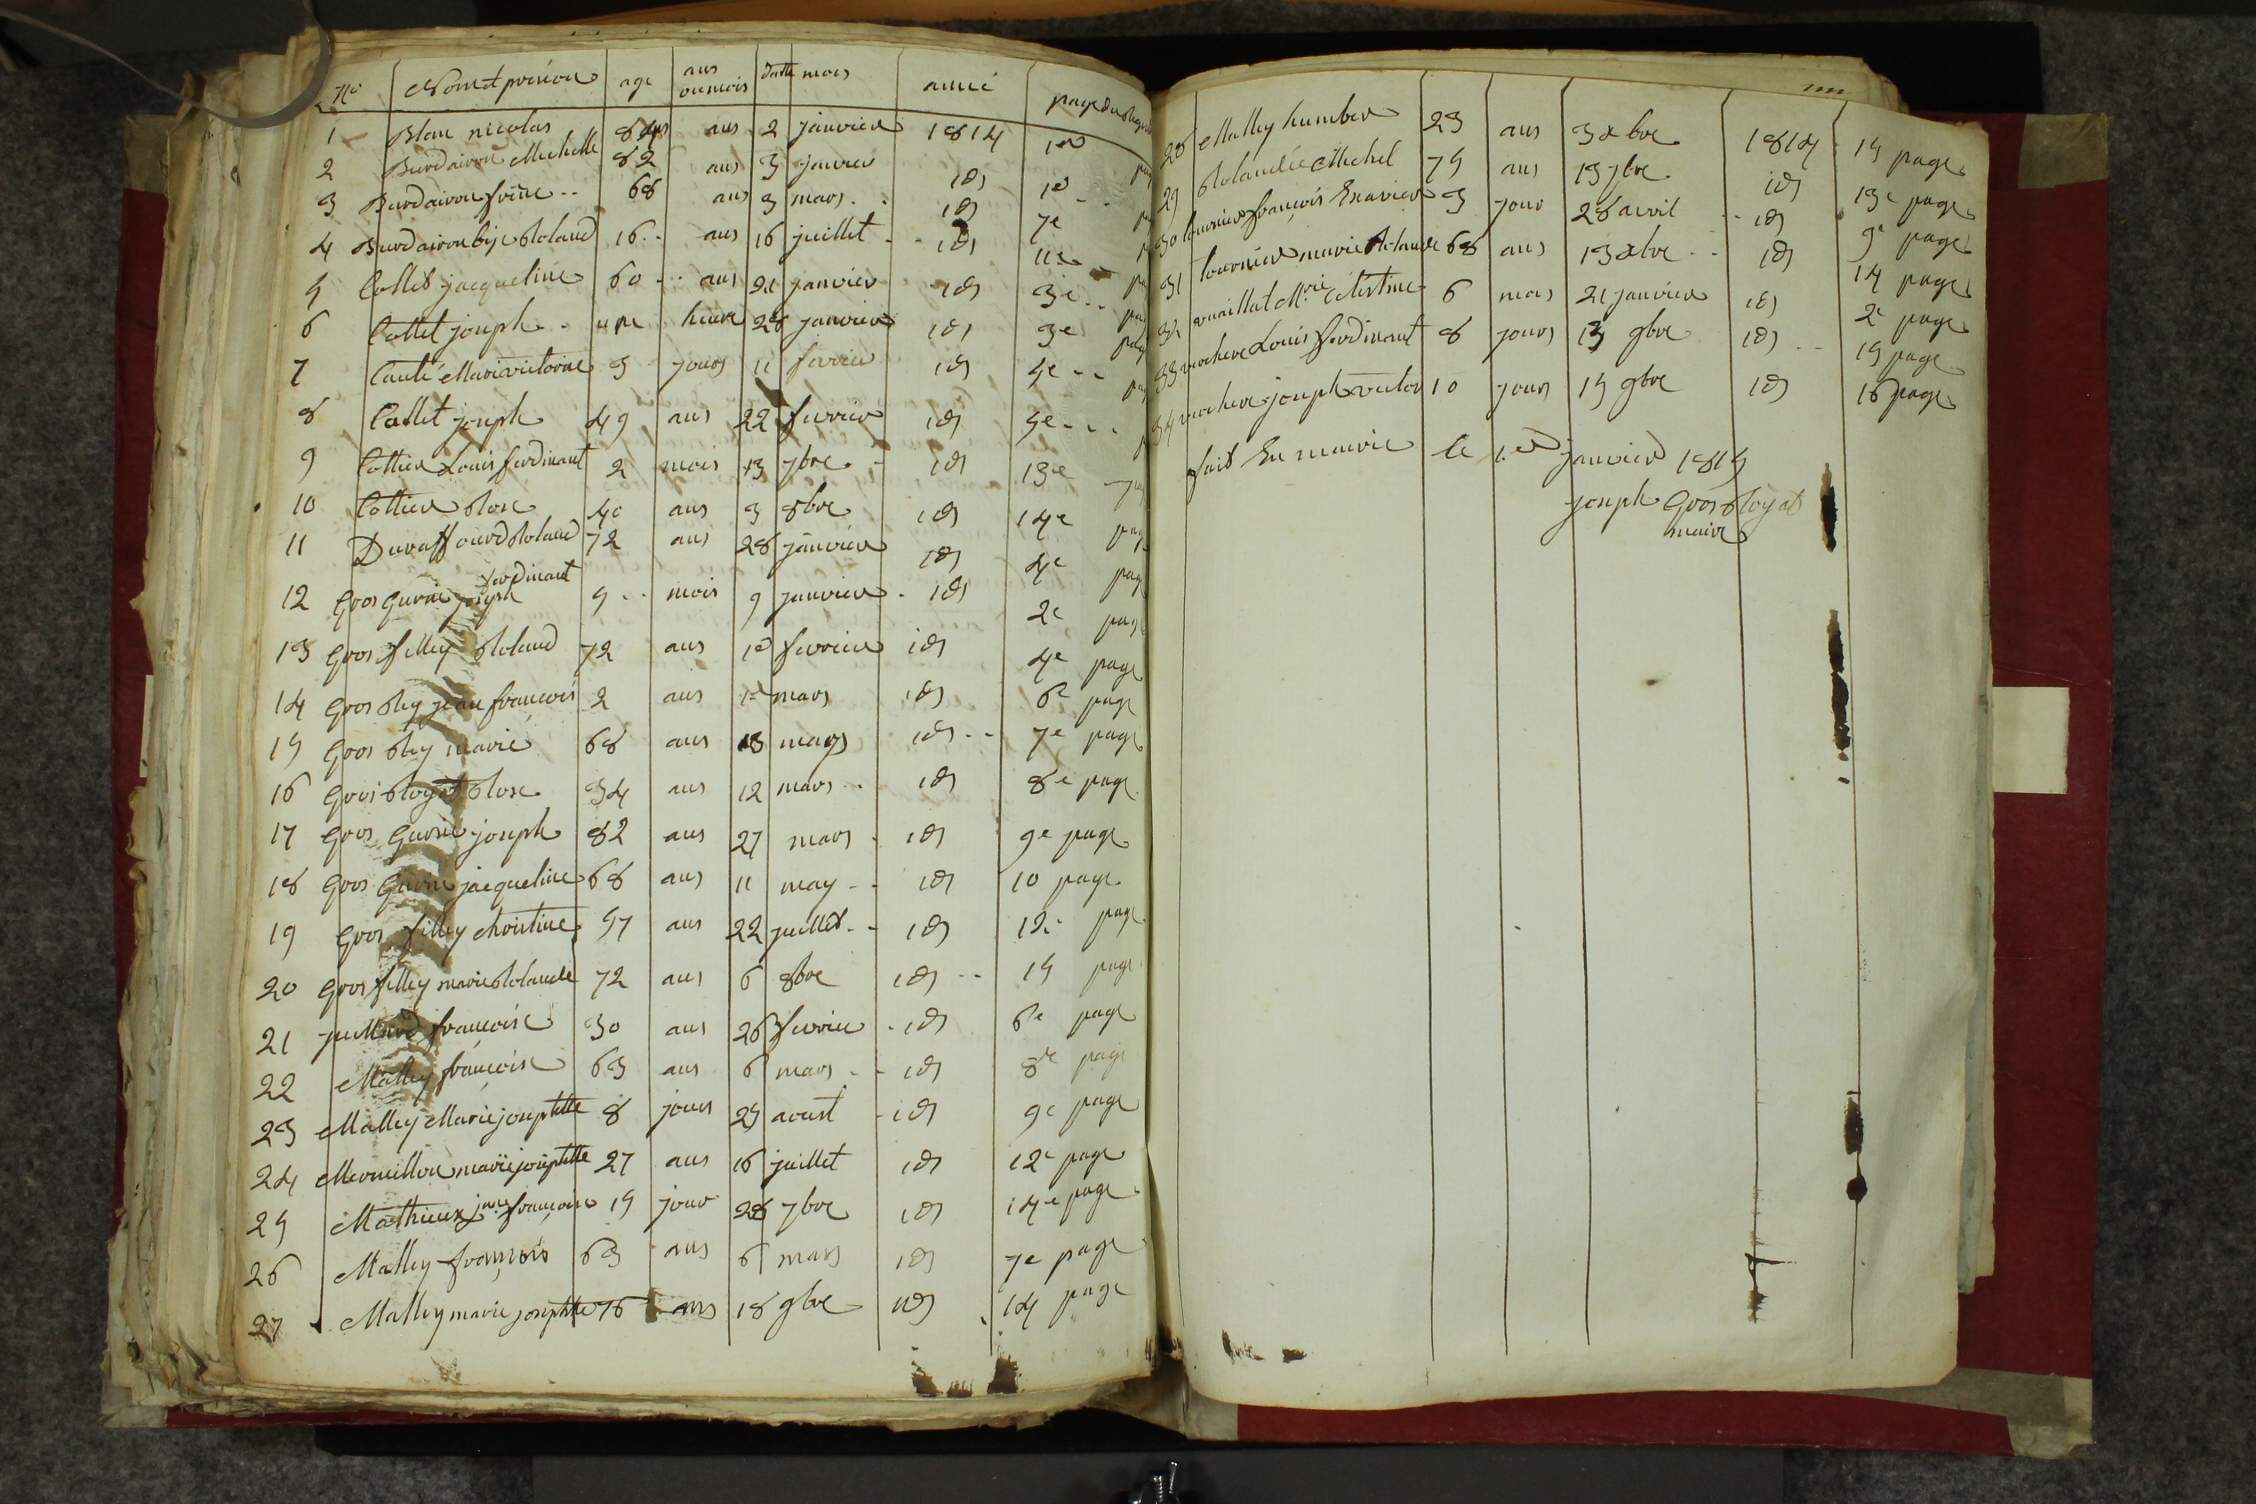 No Nom et prénon age ans ou mois datte mois année page du Regist
1 Blan nicolas 84 ans 2 janvier 1814 1er
2 Burdairon Michelle 82 ans 3 janvier id 1er
3 Burdairon frère 68 ans 3 mars id 7e
4 Burdairon bye Roland 16 ans 16 juillet id 11e
5 Collet jacqueline 60 ans 21 janvier id 3e
6 Collet joseph une heure 28 janvier id 3e
7 Cauté Marie victoire 3 jours 11 fevrier id 5e
8 Callet joseph 49 ans 22 fevrier id 5e
9 Cottier Louis ferdinant 2 mois 13 7bre id 13e
10 Cottier Rose 40 ans 3 8bre id 14e
11 Duraffourd Roland 72 ans 28 janvier id 4e page
12 Gros Gurin joseph ferdinant 5 mois 9 janvier id 2e page
13 Gros filley Roland 72 ans 1er fevrier id 4e page
14 Gros Rey jean françois 2 ans 1er mars id 6e page
15 Gros Rey marie 68 ans 13 mars id 7e page
16 Gros Royat Rose 34 ans 12 mars id 8e page
17 Gros Gurin joseph 82 ans 27 mars id 9e page
18 Gros Gurin jacqueline 68 ans 11 may id 10 page
19 Gros filley christine 57 ans 22 juillet id 12e page
20 Gros filley marie Rolande 72 ans 6 8bre id 15 page
21 juillard françoise 30 ans 26 fevrier id 6e page
22 Malley françoise 63 ans 6 mars id 8e page
23 Malley Marie josephtte 8 jours 25 aoust id 9e page
24 Mermillon marie josephtte 27 ans 16 juillet id 12e page
25 Mathieux jne françoise 15 jour 28 7bre id 14e page
26 Malley françois 63 ans 6 mars id 7e page
27 Malley marie josephtte 76 ans 18 9bre id 14 page
28 Malley humber 23 ans 3 xbre 1814 15 page
29 Rolandée Michel 75 ans 15 7bre id 13e page
30 tournier françois Exavier 3 jour 28 avril id 9e page
31 tournier marie Rolande 68 ans 13 xbre id 14 page
32 vuaillat Mrie célestine 6 mois 21 janvier id 2e page
33 vuochere Louis ferdinant 8 jours 13 9bre id 15 page
34 vuochere joseph victor 10 jours 15 9bre id 16 page
fait En mairie le 1er janvier 1815
joseph Gros Royat
maire